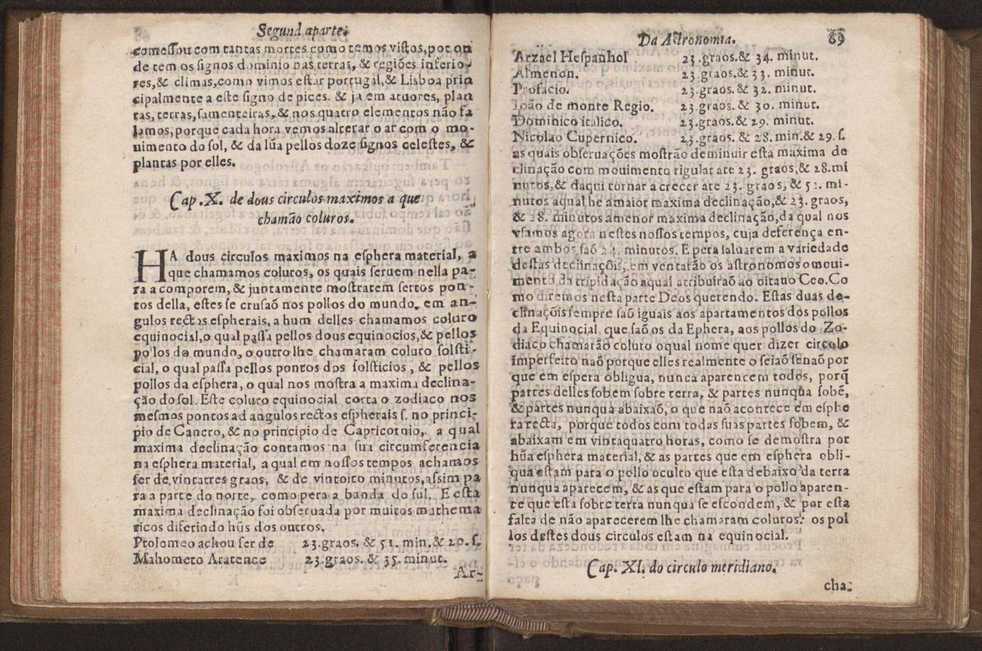 Segund aparte.
comessou com tantas mortes como temos vistos, por on
de tem os signos dominio nas terras, & regiões inferio-
res, & climas, como vimos estar portugal, & Lisboa prin
cipalmente a este signo de pices. & ja em aruores, plan
tas, terras, samenteiras, & nos quatro elementos não fa
lamos, porque cada hora vemos alterar o ar com o mo-
uimento do sol, & da lũa pellos doze signos celestes, &
plantas por elles.
Cap. X. de dous circulos maximos a que
chamão coluros.
HA dous circulos maximos na esphera material, a
que chamamos coluros, os quais seruem nella pa-
ra a comporem, & juntamente mostratem sertos pon-
tos della, estes se crusaõ nos pollos do mundo, em an-
gulos rectos espherais, a hum delles chamamos coluro
equinocial, o qual passa pellos dous equinocios, & pellos
pollos do mundo, o outro lhe chamaram coluro solsti-
cial, o qual passa pellos pontos dos solsticios, & pellos
pollos da esphera, o qual nos mostra a maxima declina-
ção do sol. Este coluro equinocial corta o zodiaco nos
mesmos pontos ad angulos rectos espherais s. no princi-
pio de Cancro, & no principio de Capricornio, a qual
maxima declinação contamos na sua circumferencia
na esphera material, a qual em nossos tempos achamos
ser de vinta tres graos, & de vintoito minutos, assim pa
ra a parte do norte, como pera a banda do sul. E esta
maxima declinação foi obseruada por muitos mathema
ticos diferindo hũs dos outros.
Ptolomeo achou ser de 23. graos. & 51. min. & 20. s.
Mahometo Aratence 23. graos. & 35. minut.
Ar-
Da Astronomia. 89
Arzael Hespanhol 23. graos. & 34. minut.
Almenon. 23. graos. & 33. minut.
Profacio. 23. graos. & 32. minut.
João de monte Regio. 23. graos. & 30. minut.
Dominico italico. 23. graos. & 29. minut.
Nicolao Cupernico. 23. graos. & 28. min. & 29. s.
as quais obseruações mostrão deminuir esta maxima de
clinação com mouimento rigular ate 23. graos, & 28. mi
nutos, & daqui tornar a crecer ate 23. graos, & 52. mi-
nutos aqual he amaior maxima declinação, & 23. graos,
& 28. minutos amenor maxima declinação, da qual nos
vsamos agora nestes nossos tempos, cuja deferença en-
tre ambos saõ 24. minutos. E pera saluarem a variedade
destas declinaçõis, em ventarão os astronomos o moui-
mento da tripidação aqual atribuiraõ ao oitauo Ceo. Co
mo diremos nesta parte Deos querendo. Estas duas de-
clinaçõis sempre saõ iguais aos apartamentos dos pollos
da Equinocial, que saõ os da Ephera, aos pollos do Zo-
diaco chamarão coluro oqual nome quer dizer circulo
imperfeito naõ porque elles realmente o seiaõ senaõ por
que em espera obligua, nunca aparecem todos, porq̃
partes delles sobem sobre terra, & partes nunqua sobẽ,
& partes nunqua abaixaõ, o que naõ acontece em esphe
ra recta, porque todos com todas suas partes sobem, &
abaixam em vinta quatro horas, como se demostra por
hũa esphera material, & as partes que em esphera obli-
qua estam para o pollo oculto que esta debaixo da terra
nunqua aparecem, & as que estam para o pollo aparen-
te que esta sobre terra nunqua se escondem, & por esta
falta de não aparecerem lhe chamaram coluros: os pol
los destes dous circulos estam na equinocial.
Cap. XI. do circulo meridiano.
cha-